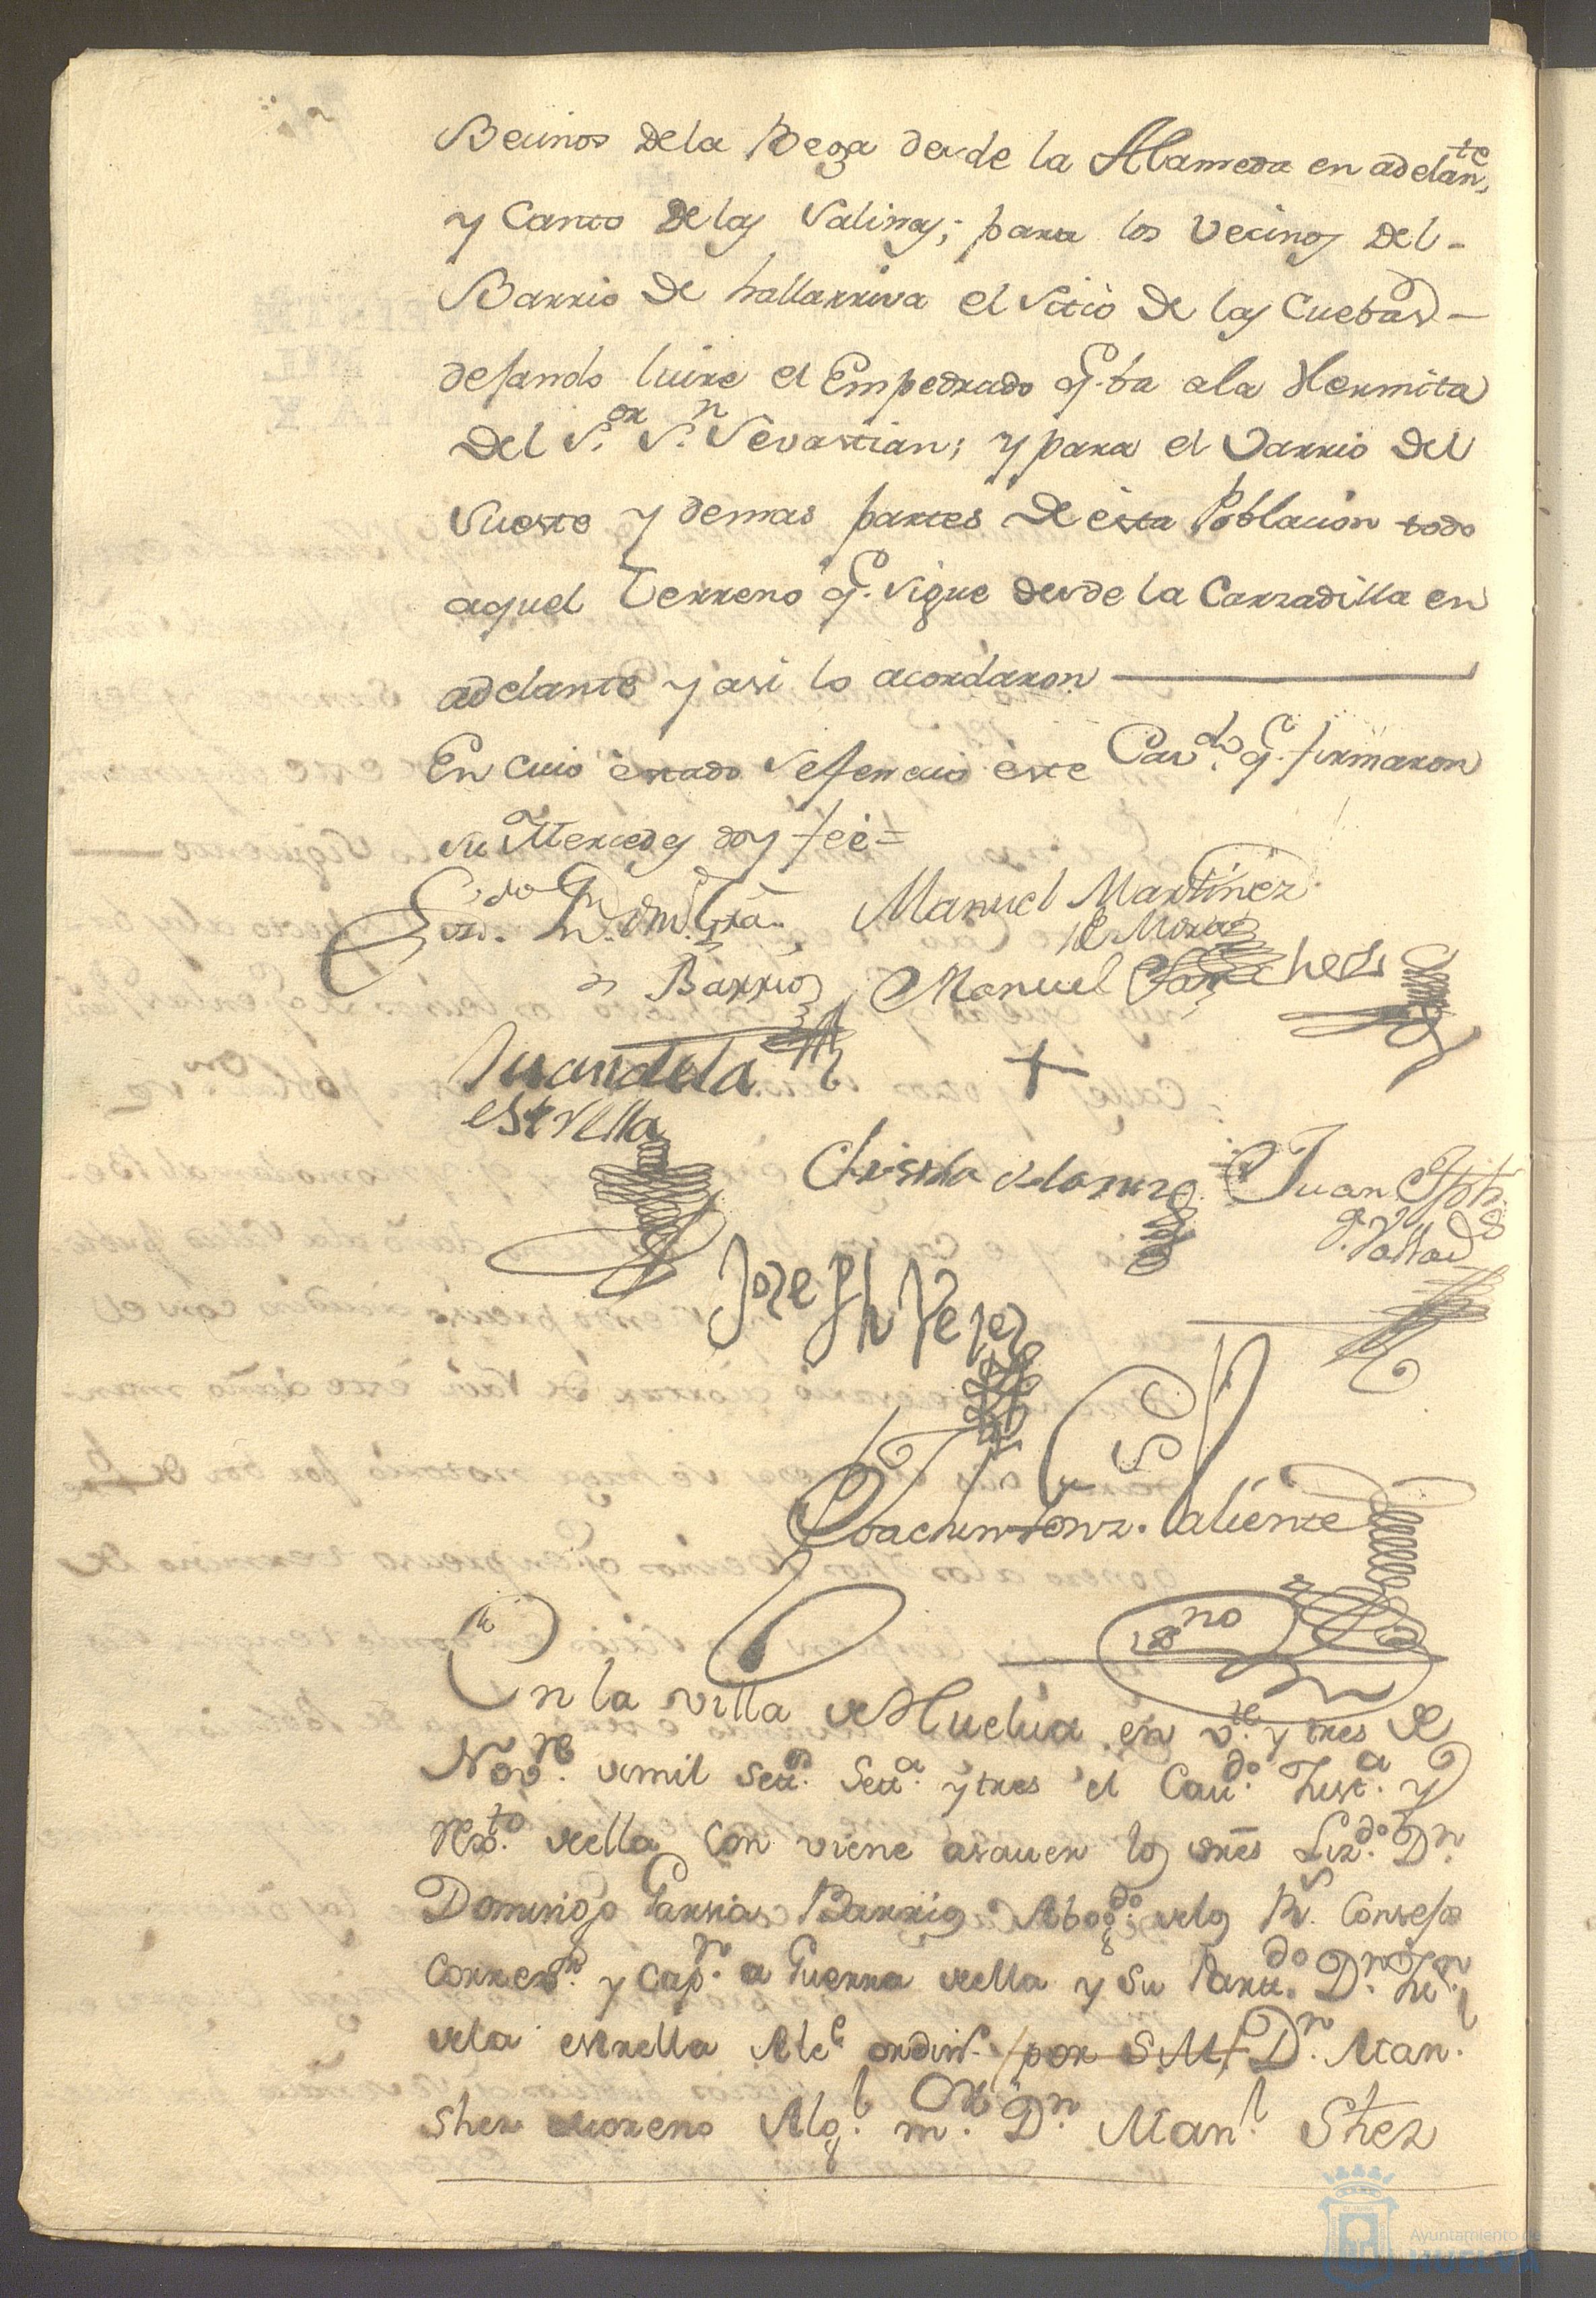 Becinos dela Bega desde la Alameda en adelante
y Canto delas Salinas; para los Vecinos del-
Barrio de hallarriva el Sitio de las Cuebas-
dejando luire el Empedrado q.e ba ala Hermita
del S.or S.n Sevastian; y para el Varrio del
Sueste y demas partes de esta Poblacion todo
aquel terreno q.e Sigue desde la Carzadilla en
adelante y asi lo acordaron
En cuio estado Sefenecio este Cav.do q.e firmaron
su Mercedes doy fee=
Liz.do Dn. Dom. Gra.
Barrios
Manuel Martinez
de Mora
Manuel Sanchez
Juandela
estrella
Christo
Juan
Joseph Vejez
Joachin Gonz. Saliente
ss.no
En la villa de Huelua en v.te y tres de
Nov.re de mil Sett.os Sett.a y tres el Cau.do Just.a y
Rex.to de ella con viene asauer los sres Liz.do D.n
Domingo Garsias Barrios Abog.do de los R.s Consejos
Correx.or y Cap.n a Guerra de ella y su Part.do D.n
de la estrella Alc.e ordin.o por S.M. D.n Man.l
Shez Moreno Alg.l m.or D.n Man.l Shez
Ayuntamiento de
HUELVA